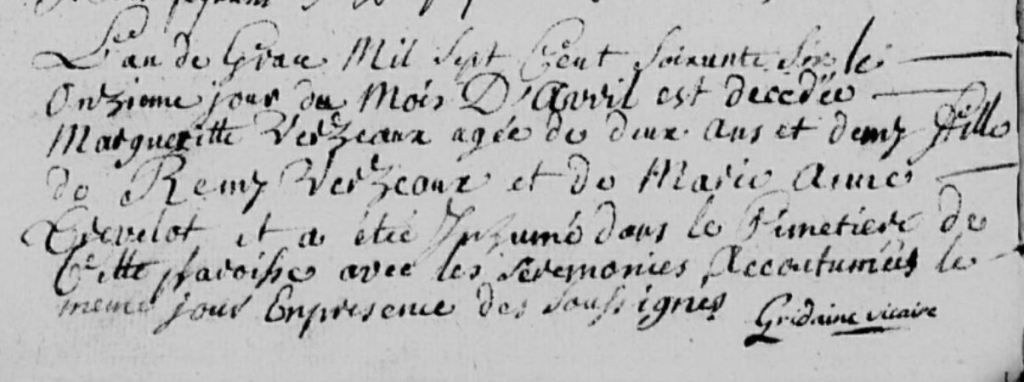 L'an de Grace Mil Sept Cent soixante six le
Onzieme jour du Mois D'Avril est decedée
Margueritte Verzeaux agée de deux ans et demy fille
de Remy Verzeaux et de Marie Anne
Crevelot et a été Inhumé dans le Cimetiere de
Cette parroisse avec les Seremonies Accoutumées le
meme jour En presence des soussignés Gridaine vicaire